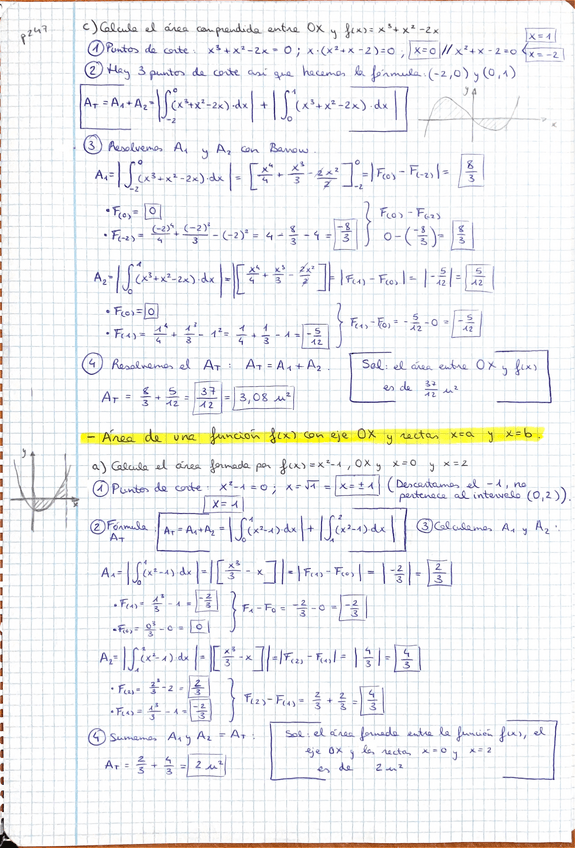 p247
c) Calcula el área comprendida entre OX y f(x) = x³+x²-2x
① Puntos de corte: x³+x²-2x=0 ; x·(x²+x-2)=0 ; x=0 // x²+x-2=0 < x=1 x=-2
② Hay 3 puntos de corte así que hacemos la fórmula: (-2,0) y (0,1)
A_T = A₁+A₂ = |∫₋₂⁰ (x³+x²-2x)·dx| + |∫₀¹ (x³+x²-2x)·dx|
y
x
③ Resolvemos A₁ y A₂ con Barrow.
A₁= |∫₋₂⁰ (x³+x²-2x)·dx| = [x⁴/4 + x³/3 - 2x²/2]₋₂⁰ = |F(0) - F(-2)| = 8/3
• F(0) = 0
• F(-2) = (-2)⁴/4 + (-2)³/3 - (-2)² = 4 - 8/3 - 4 = -8/3 } F(0) - F(-2)
0-(-8/3) = 8/3
A₂ = |∫₀¹ (x³+x²-2x)·dx| = |[x⁴/4 + x³/3 - 2x²/2]| = |F(1) - F(0)| = |-5/12| = 5/12
• F(0) = 0
• F(1) = 1⁴/4 + 1³/3 - 1² = 1/4 + 1/3 - 1 = -5/12 } F(1) - F(0) = -5/12 - 0 = -5/12
④ Resolvemos el A_T : A_T = A₁ + A₂.
A_T = 8/3 + 5/12 = 37/12 = 3,08 u²
Sol: el área entre OX y f(x)
es de 37/12 u²
- Área de una función f(x) con eje OX y rectas x=a y x=b.
y
x
a) Calcula el área formada por f(x) = x²-1, OX y x=0 y x=2
① Puntos de corte: x²-1=0 ; x=√1 = x=±1 (Descartamos el -1, no
pertenece al intervalo (0,2)).
x=1
② Fórmula A_T : A_T = A₁+A₂ = |∫₀¹ (x²-1) dx| + |∫₁² (x²-1) dx| ③ Calculamos A₁ y A₂ :
A₁ = |∫₀¹ (x²-1)·dx| = |[x³/3 - x]| = |F(1) - F(0)| = |-2/3| = 2/3
• F(1) = 1³/3 - 1 = -2/3
• F(0) = 0³/3 - 0 = 0 } F1 - F0 = -2/3 - 0 = -2/3
A₂ = |∫₁² (x²-1) dx| = |[x³/3 - x]| = |F(2) - F(1)| = |4/3| = 4/3
• F(2) = 2³/3 - 2 = 2/3
• F(1) = 1³/3 - 1 = -2/3 } F(2) - F(1) = 2/3 + 2/3 = 4/3
④ Sumamos A₁ y A₂ = A_T :
A_T = 2/3 + 4/3 = 2 u²
Sol: el área formada entre la función f(x), el
eje OX y las rectas x=0 y x=2
es de 2 u²